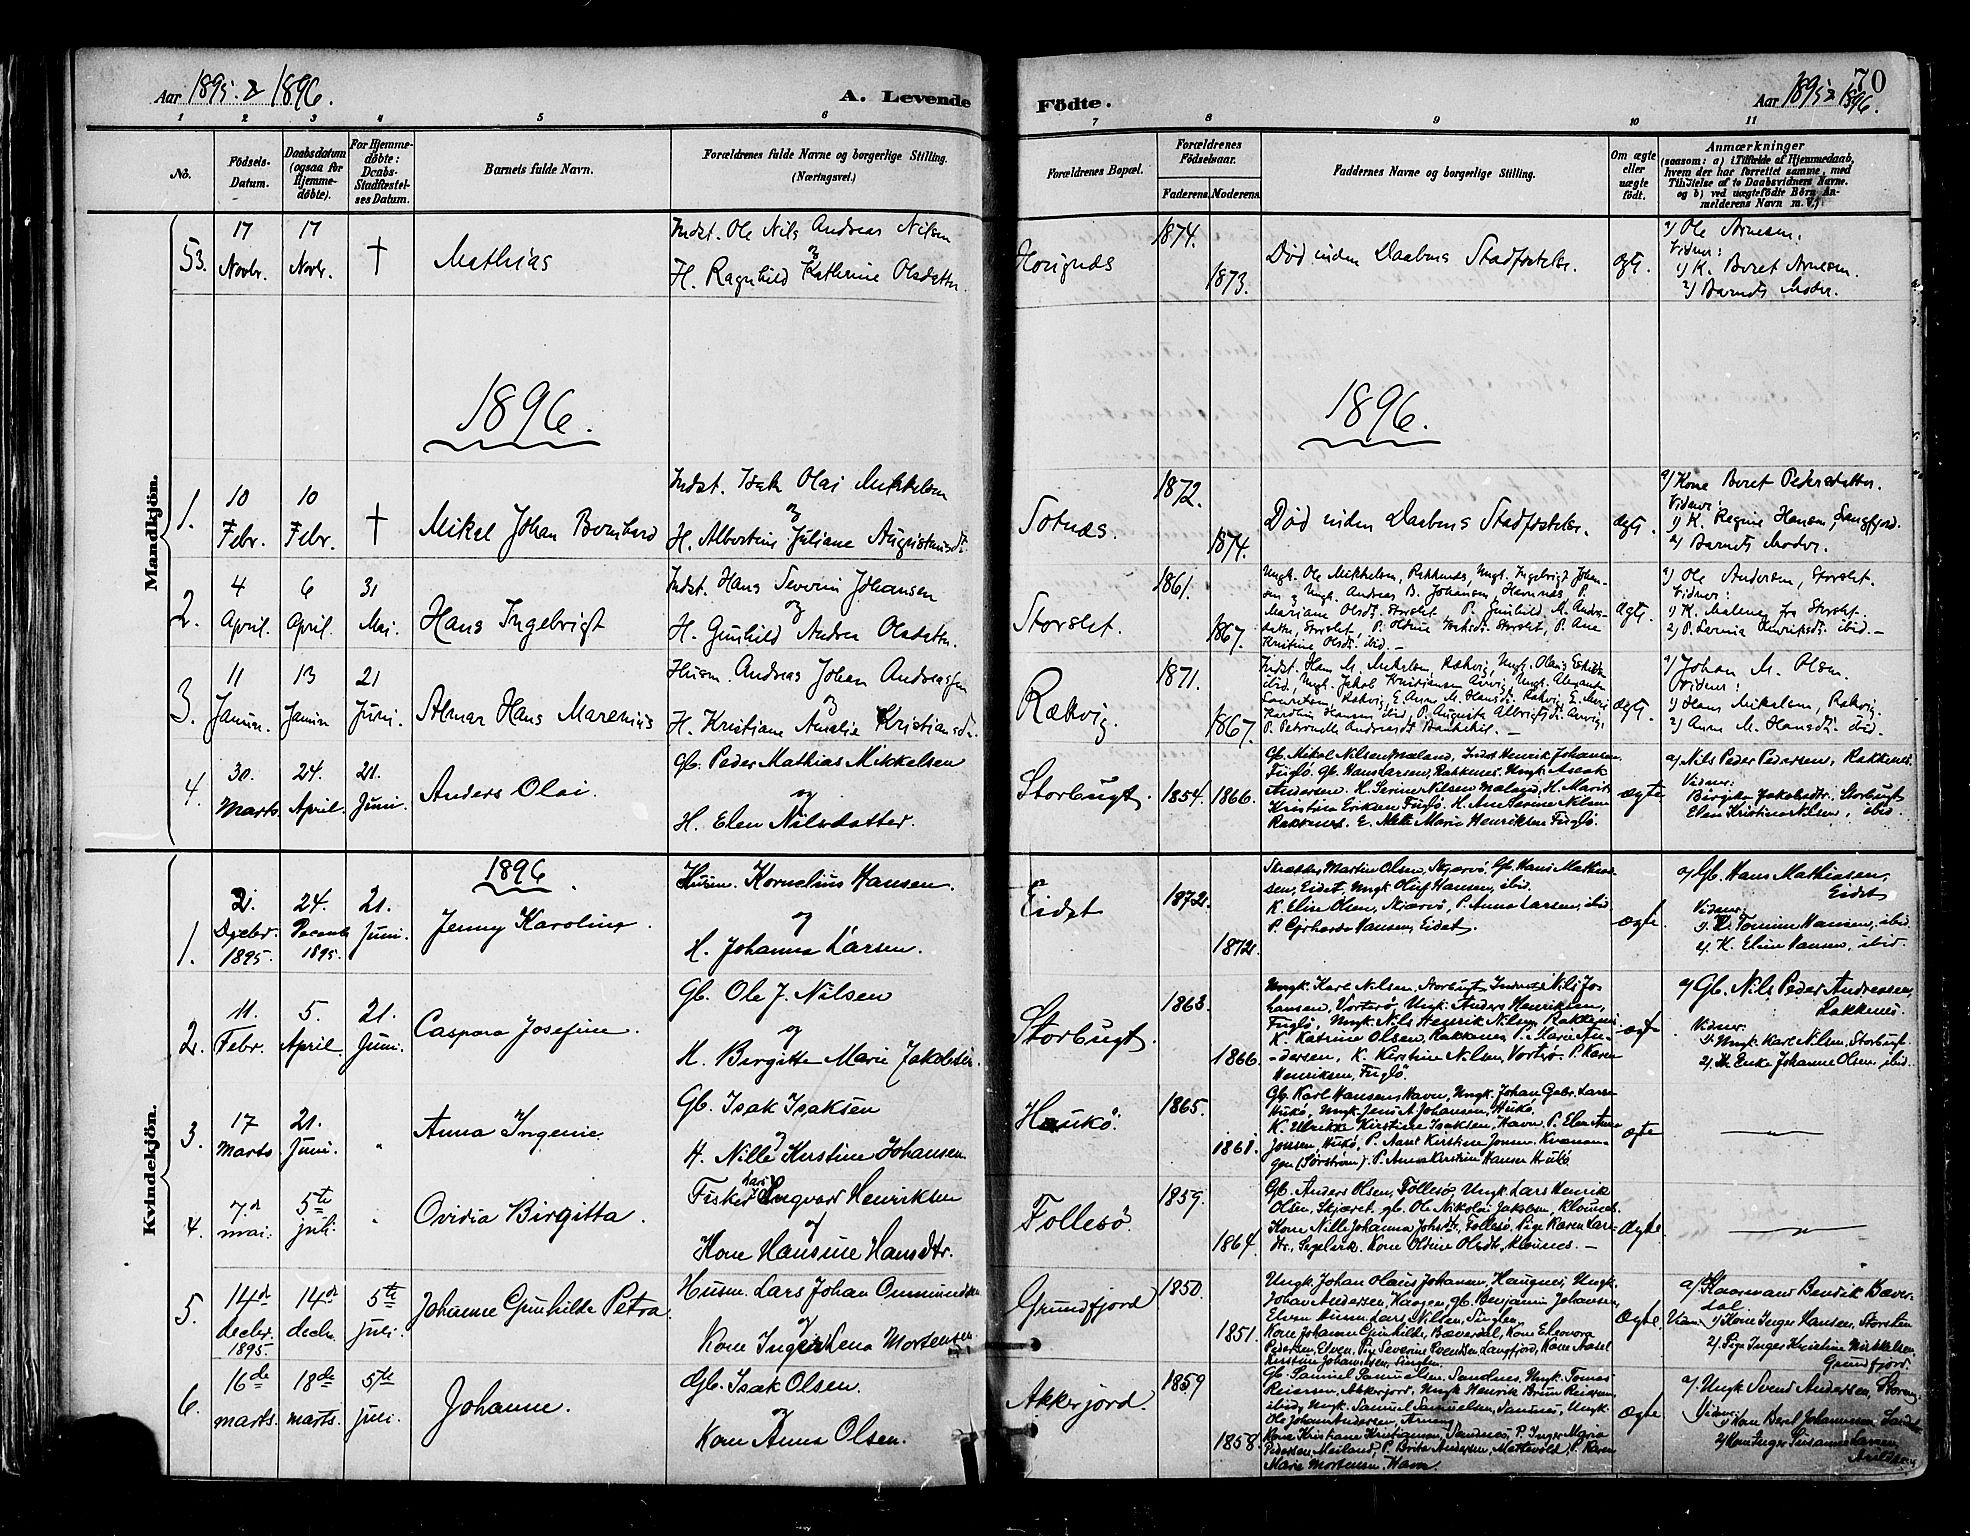 Aar 1895 & 1896.
A. Levende
Födte.
Aar 1895 & 1896.
70
1 2 3 4 5 6 7 8 9 10 11
No.
Födsels-
Datum.
Daabsdatum
(ogsaa for
Hjemme-
döbte).
For Hjemme-
döbte:
Daabs-
Stadfæstel-
ses Datum.
Barnets fulde Navn.
Forældrenes fulde Navne og borgerlige Stilling.
(Næringsvei.)
Forældrenes Bopæl.
Forældrenes
Födselsaar.
Faderens. Moderens.
Faddernes Navne og borgerlige Stilling.
Om ægte
eller
uægte
födt.
Anmærkninger
(saasom: a) i Tilfælde af Hjemmedaab,
hvem der har forrettet samme, med
Tilföielse af to Daabsvidners Navne.
og b) ved uægtefödte Börn An-
melderens Navn m. V.)
Mandkjön.
53.
17
Novbr.
17
Novbr.
†
Mathias
Indst. Ole Nils Andreas Nilsen
og
H. Ragnhild Katherine Olsdatter.
1874.
1873.
Død inden Daabens Stadfæstelse.
ægt.
a) Ole Arnesen.
Vidner:
1) K. Beret Arnesen.
2) Barnets Moder.
1896.
1896.
1.
10
Febr.
10
Febr.
†
Mikel Johan Bernhard
Indst. Isak Olai Mikkelsen
og
H. Albertine Juliane Augustinusdt.
Sotnæs.
1872.
1874.
Død inden Daabens Stadfæstelse.
ægt.
a) Kone Beret Pedersdatter.
Vidner:
1) K. Regine Hansen, Langfjord.
2) Barnets Moder.
2.
4
April.
6
April.
31
Mai.
Hans Ingebrigt
Indst. Hans Severin Johansen
og
H. Gunhild Andrea Olsdatter.
Storslet.
1861.
1867.
Ungk. Ole Mikkelsen, Rakkenæs, Ungk. Ingebrigt Johan-
sen og Ungk. Andreas B. Johansen, Havnnæs, P.
Mariane Olsdt. Storslet, P. Gunhild M. Anders-
datter, Storslet, P. Oldine Isaksdt. Storslet, P. Ane
Kristine Olsdt. ibid. —
ægt.
a) Ole Andersen, Storslet.
Vidner:
1) K. Malena fra Storslet.
2) P. Lovnia Henriksdt. ibid. —
3.
11
Januar.
13
Januar
21
Juni.
Almar Hans Marenius
Husm. Andreas Johan Andreassen
og
H. Kristiane Amalie Kristiansdt.
Rækvig.
1871.
1867.
Indst. Hans M. Mikelsen, Rækvig,
ibid, Ungk. Jakob Kristiansen
Lauritsen, Rakvig, E. Anne M. Hansdt. Rakvig,
Hansen ibid, P. Augusta Albrigtsdt.
P. Petronelle Andreasdt
ægt.
a) Johan M. Olsen.
Vidner:
1) Hans Mikelsen, Rakvig.
2) Anne M. Hansdt. ibid.
4.
30.
Marts
24.
April.
21.
Juni.
Anders Olai.
Gb. Peder Mathias Mikkelsen
og
H. Elen Nilsdatter.
Storbugt.
1854.
1866.
Gb. Mikal Nilsen Mæland, Indst. Henrik Johansen
Fuglø. Gb. Hans Larsen, Rakkenes. Ungk. Aslak
Andersen. H. Serine Nilsen Mæland, H. Marit
Kristina Eriksen Fuglø. H. Ane Serine Nilsen
Rakkenes. E. Mette Marie Henriksen Fuglø.
ægte
a) Nils Peder Pedersen, Rakkenes.
Vidner:
Birgitte Jakobsdtr. Storbugt
Elen Kristine Nilsen, ibid.
Kvindekjön.
1896
1.
2.
Decbr.
1895.
24.
Decemb
1895.
21.
Juni.
Jenny Karoline.
Husm. Kornelius Hansen.
og
H. Johanna Larsen.
Eidet
1872.
1872.
Skrædder Martin Olsen, Skjærvö, Gb. Hans Mathias-
sen, Eidet, Ungk. Oluf Hansen, ibid.
K. Elise Olsen, Skjærvö, P. Anna Larsen, ibid
P. Gjerharda Hansen, Eidet.
ægte.
a) Gb. Hans Mathiasen,
Eidet
Vidner:
Hansen, ibid
2) K. Eline Hansen, ibid.
2.
11.
Febr.
5.
April.
21.
Juni.
Caspara Josefine.
Gb. Ole J. Nilsen
og
H. Birgitte Marie Jakobsen.
Storbugt.
1863.
1866.
Ungk. Karl Nilsen, Storbugt, Indst. Nils Jo-
hansen, Vorterö, Ungk. Anders Henriksen,
Fuglö, Ungk. Nils Henrik Nilsen, Rakkenes
K. Katrine Olsen, Rakkenes, P. Marie An-
dersen, K. Kirstine Nilsen, Vorterö, P. Karen
Henriksen, Fuglö.
ægte
a) Gb. Nils Peder Andreasen,
Rakkenes.
Vidner:
1. Ungk. Karl Nilsen, Storbugt.
Johanne Olsen, ibid.
3.
17
Marts
21.
Juni.
"
Anna Ingenie.
Gb. Isak Isaksen
og
H. Nille Kirstine Johansen
Haukö.
1865.
1861.
Gb. Karl Hansen, Havn, Ungk. Johan Gabr. Larsen
Hukö, Ungk. Jens A. Johansen, Hukö.
K. Ulrikke Kirstine Isaksen, Havn, P. Elen Anna
Jonsen, Hukö, P. Aasel Kirstine Jensen, Kvænan-
gen (Sörströmm). P. Anna Kirstine Hansen Hukö
ægte
4.
7.d
mai.
5te
juli.
"
Ovidia Birgitta.
Fisker Lars Ingvard Henriksen
og
Kone Hansine Hansdtr.
Follesö.
1859.
1864.
Gb. Anders Olsen, Föllesö, Ungk. Lars Henrik
Olsen, Skjæret, gb. Ole Nikolai Jakobsen, Klovnes
Kone Nille Johanna Johsdtr., Follesö, Pige Karen Lars-
dtr, Segelvik. Kone Oldine Olsdtr, Klovnes. —
Ægte
5.
14d
decbr.
1895.
14d
decbr.
5te
juli.
Johanne Gunhilde Petra
Husm. Lars Johan Ommundsen
og
Kone Inger Lena Mortensen
Grundfjord
1850.
1851.
Ungk. Johan Olaus Johansen, Haugnes, Ungk.
Johan Andersen, Haugen, gb. Benjamin Johansen,
Elven, Husm. Lars Nilsen, Singlen.
Kone Johanne Gunhilde, Bæverdal, Kone Eleonora
Pedersen, Elven, Pige Severine Svendsen, Langfjord, Kone Aasel
Kirstine Johannesen, Singlen.
Ægte.
a) Kaarmand Bendik Bæver-
dal
Vidner 1) Kone Inger Hansen, Storsten
2) Pige Inger Kristine Mikkelsen,
Grundfjord.
6.
16de
marts.
18de
marts.
5te
juli.
Johanne.
Gb. Isak Olsen.
og
Kone Anna Olsen.
Akkerjord.
1859
1858.
Gb. Samuel Samuelsen, Sandnes. Ungk. Tomas
Reiersen, Akkerjord, Ungk. Henrik Bruun Reiersen,
ibid, Ungk. Samuel Samuelsen, Sandnes, Ungk.
Ole Johan Andersen,
Kone Kristiane Kristiansen, Sandnes, P. Inger Maria
Pedersen, Meiland, P. Brita Andersen, Mettevold, P. Karen
Marie Mortensen, Havn.
Ægte
a. Ungk. Svend Andersen,
Vidner: 1) Kone Beret Johannesen
2) Kone Inger Susanna Larsen